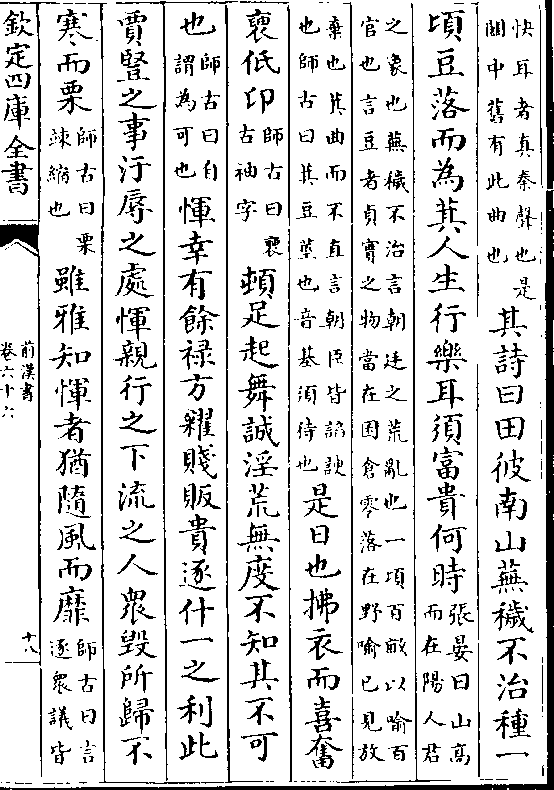 快耳者真秦聲也是
關中舊有此曲也
其詩曰田彼南山蕪穢不治種一
頃豆落而為萁人生行樂耳須富貴何時
張晏曰山高
而在陽人君
之象也蕪穢不治言朝廷之荒亂也一頃百畝以喻百
官也言豆者貞實之物當在囷倉零落在野喻已見放
棄也萁曲而不直言朝臣皆諂諛
也師古曰萁豆莖也音基須待也
是日也拂衣而喜奮
褎低卬
師古曰褎
古袖字
頓足起舞誠淫荒無度不知其不可
也
師古曰自
謂為可也
惲幸有餘祿方糴賤販貴逐什一之利此
賈豎之事汙辱之處惲親行之下流之人衆毀所歸不
寒而栗
師古曰栗
竦縮也
雖雅知惲者猶隨風而靡
師古曰言
逐衆議皆
欽定四庫全書
前漢書
卷六十六
十八